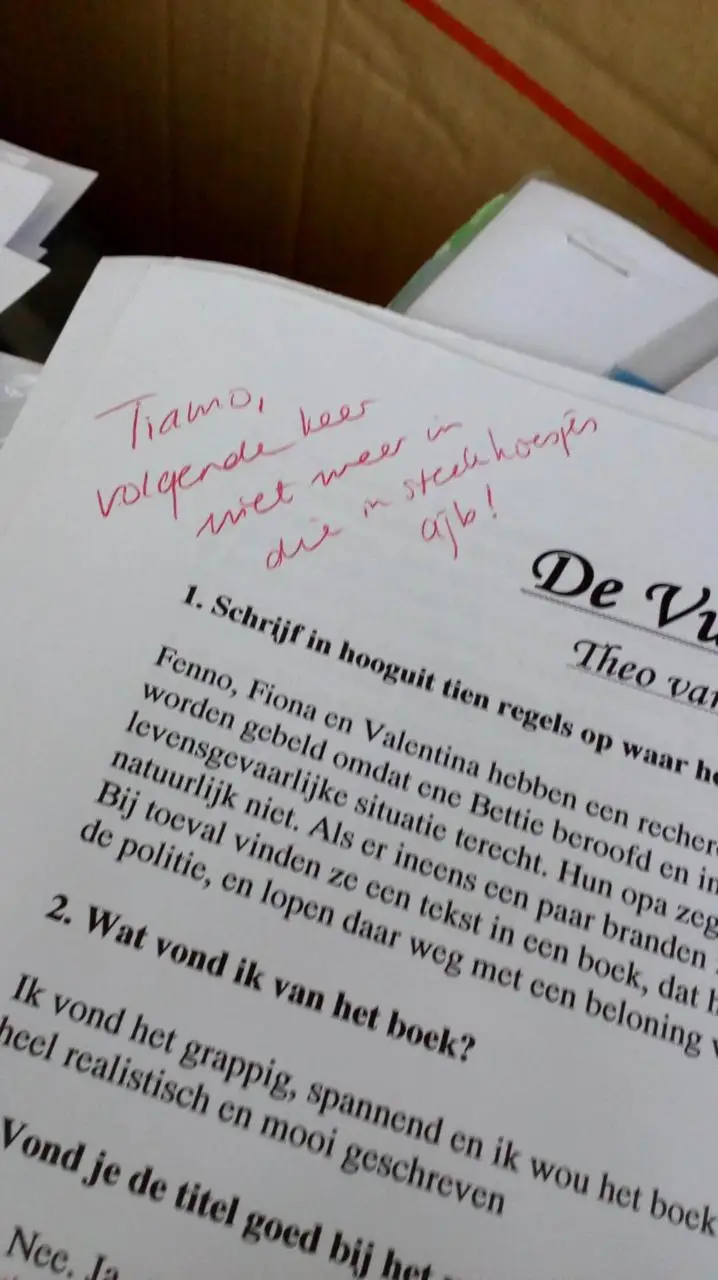 Tiamo,
volgende keer
niet meer in
die insteekhoesjes
ajb!
De Vu
Theo va
1. Schrijf in hooguit tien regels op waar he
Fenno, Fiona en Valentina hebben een recher
worden gebeld omdat ene Bettie beroofd en in
levensgevaarlijke situatie terecht. Hun opa zeg
natuurlijk niet. Als er ineens een paar branden
Bij toeval vinden ze een tekst in een boek, dat h
de politie, en lopen daar weg met een beloning v
2. Wat vond ik van het boek?
Ik vond het grappig, spannend en ik wou het boek
heel realistisch en mooi geschreven
Vond je de titel goed bij het
Nee. Ja